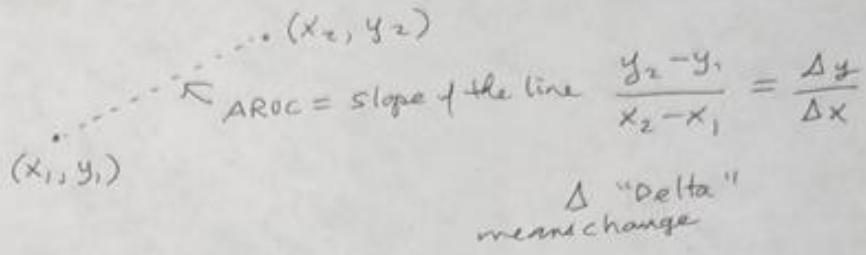 (x₂, y₂)
AROC = slope of the line (y₂ - y₁)/(x₂ - x₁) = Δy/Δx
(x₁, y₁)
Δ "Delta"
means change